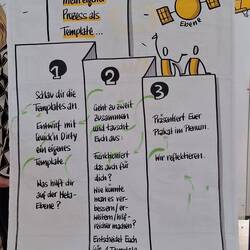 mein eigener
Prozess als
Template...
Ebene
1
Schau dir die
Templates an.
Entwirf mit
Quick'n Dirty
ein eigenes
Template
Was hilft dir
auf der Meta-
Ebene?
2
Geht zu zweit
zusammen
und tauscht
Euch aus:
Funktioniert
das auch für
dich?
Wie könnte
man es ver-
bessern / er-
weitern / hilf-
reicher machen?
Entscheidet Euch
3
Präsentiert Euer
Plakat im Plenum.
Wir reflektieren.